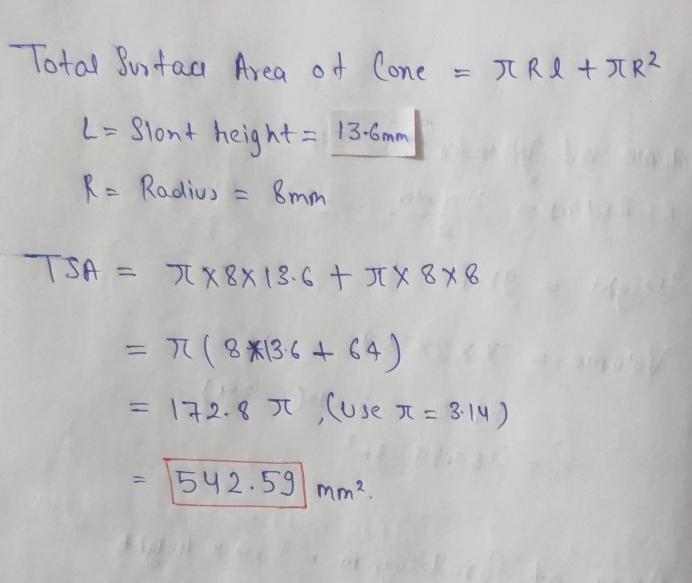 Total Surface Area of Cone = πRl + πR²
L = Slont height = 13.6mm
R = Radius = 8mm
TSA = π×8×13.6 + π×8×8
= π(8*13.6 + 64)
= 172.8 π, (use π = 3.14)
= 542.59 mm².